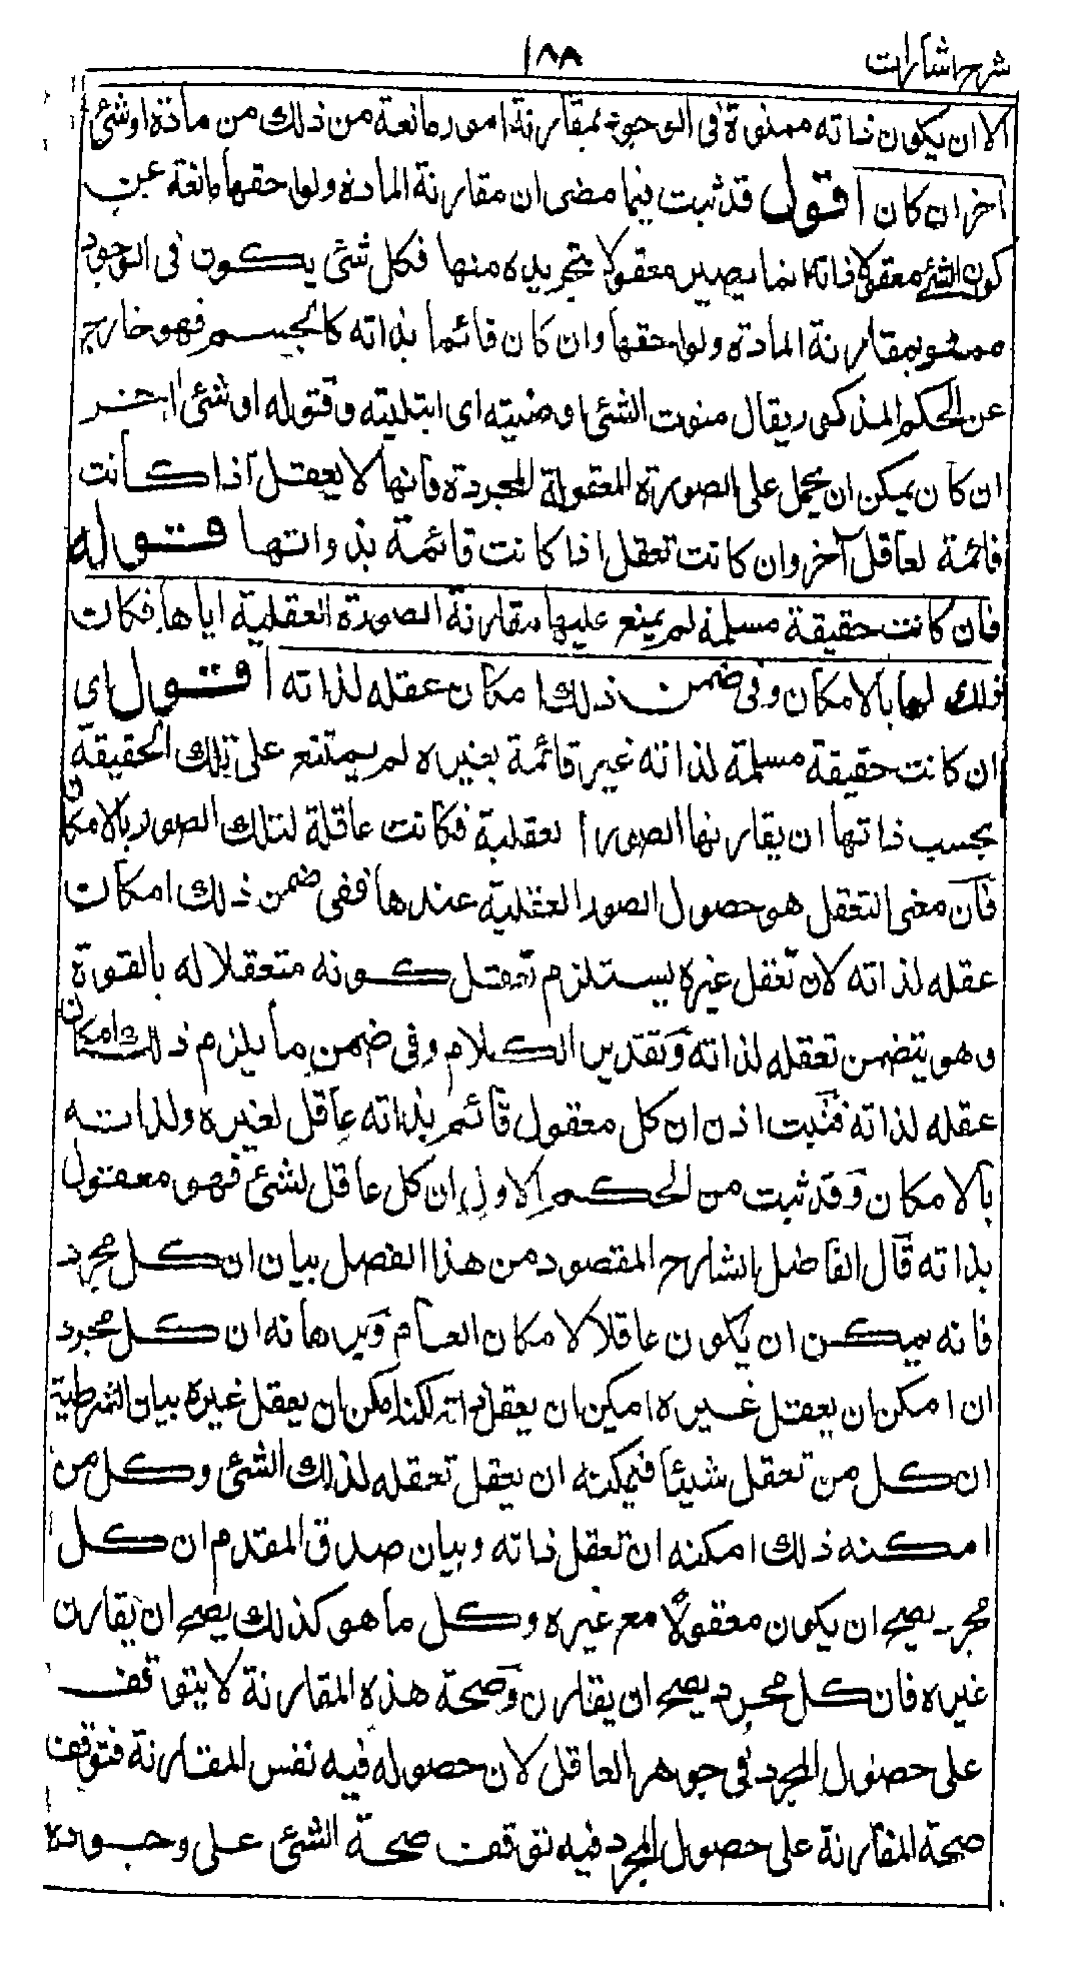 شرح اشارات
١٨٨
الا ان يكون ذاته ممنوة فى الوجود بمقارنة امور مانعة من ذلك من مادة او شئ
آخر ان كان اقول قد ثبت فيما مضى ان مقارنة المادة ولواحقها مانعة عن
كون الشئ معقولا فانه انما يصير معقولا بتجريده منها فكل شئ يكون فى الوجود
ممنو بمقارنة المادة ولواحقها وان كان قائما بذاته كالجسم فهو خارج
عن الحكم المذكور يقال منوت الشئ او منيته اى ابتليته وقوله او شئ آخر
ان كان يمكن ان يحمل على الصورة المعقولة المجردة فانها لا يعقل اذا كانت
قائمة لعاقل آخر وان كانت تعقل اذا كانت قائمة بذواتها قوله
فان كانت حقيقة مسلمة لم يمنع عليها مقارنة الصورة العقلية اياها فكان
ذلك لها بالامكان وفى ضمن ذلك امكان عقله لذاته اقول اى
ان كانت حقيقة مسلمة لذاته غير قائمة بغيره لم يمتنع على تلك الحقيقة
بحسب ذاتها ان يقارنها الصور العقلية فكانت عاقلة لتلك الصور بالامكان
فان معنى التعقل هو حصول الصور العقلية عندها ففى ضمن ذلك امكان
عقله لذاته لان تعقل غيره يستلزم تعقل كونه متعقلا له بالقوة
وهو يتضمن تعقله لذاته وتقدير الكلام وفى ضمن ما يلزم ذلك امكان
عقله لذاته فثبت اذن ان كل معقول قائم بذاته عاقل لغيره ولذاته
بالامكان وقد ثبت من الحكم الاول ان كل عاقل لشئ فهو معقول
بذاته قال الفاضل الشارح المقصود من هذا الفصل بيان ان كل مجرد
فانه يمكن ان يكون عاقلا لا مكان العام وبرهانه ان كل مجرد
ان امكن ان يعقل غيره امكن ان يعقل ذاته لكنه امكن ان يعقل غيره بيان الشرطية
ان كل من تعقل شيئا فيمكنه ان يعقل تعقله لذلك الشئ وكل من
امكنه ذلك امكنه ان تعقل ذاته وبيان صدق المقدم ان كل
مجرد يصح ان يكون معقولا مع غيره وكل ما هو كذلك يصح ان يقارن
غيره فان كل مجرد يصح ان يقارن وصحة هذه المقارنة لا يتوقف
على حصول المجرد فى جوهر العاقل لان حصوله فيه نفس المقارنة فتوقف
صحة المقارنة على حصول المجرد فيه توقف صحة الشئ على وجوده